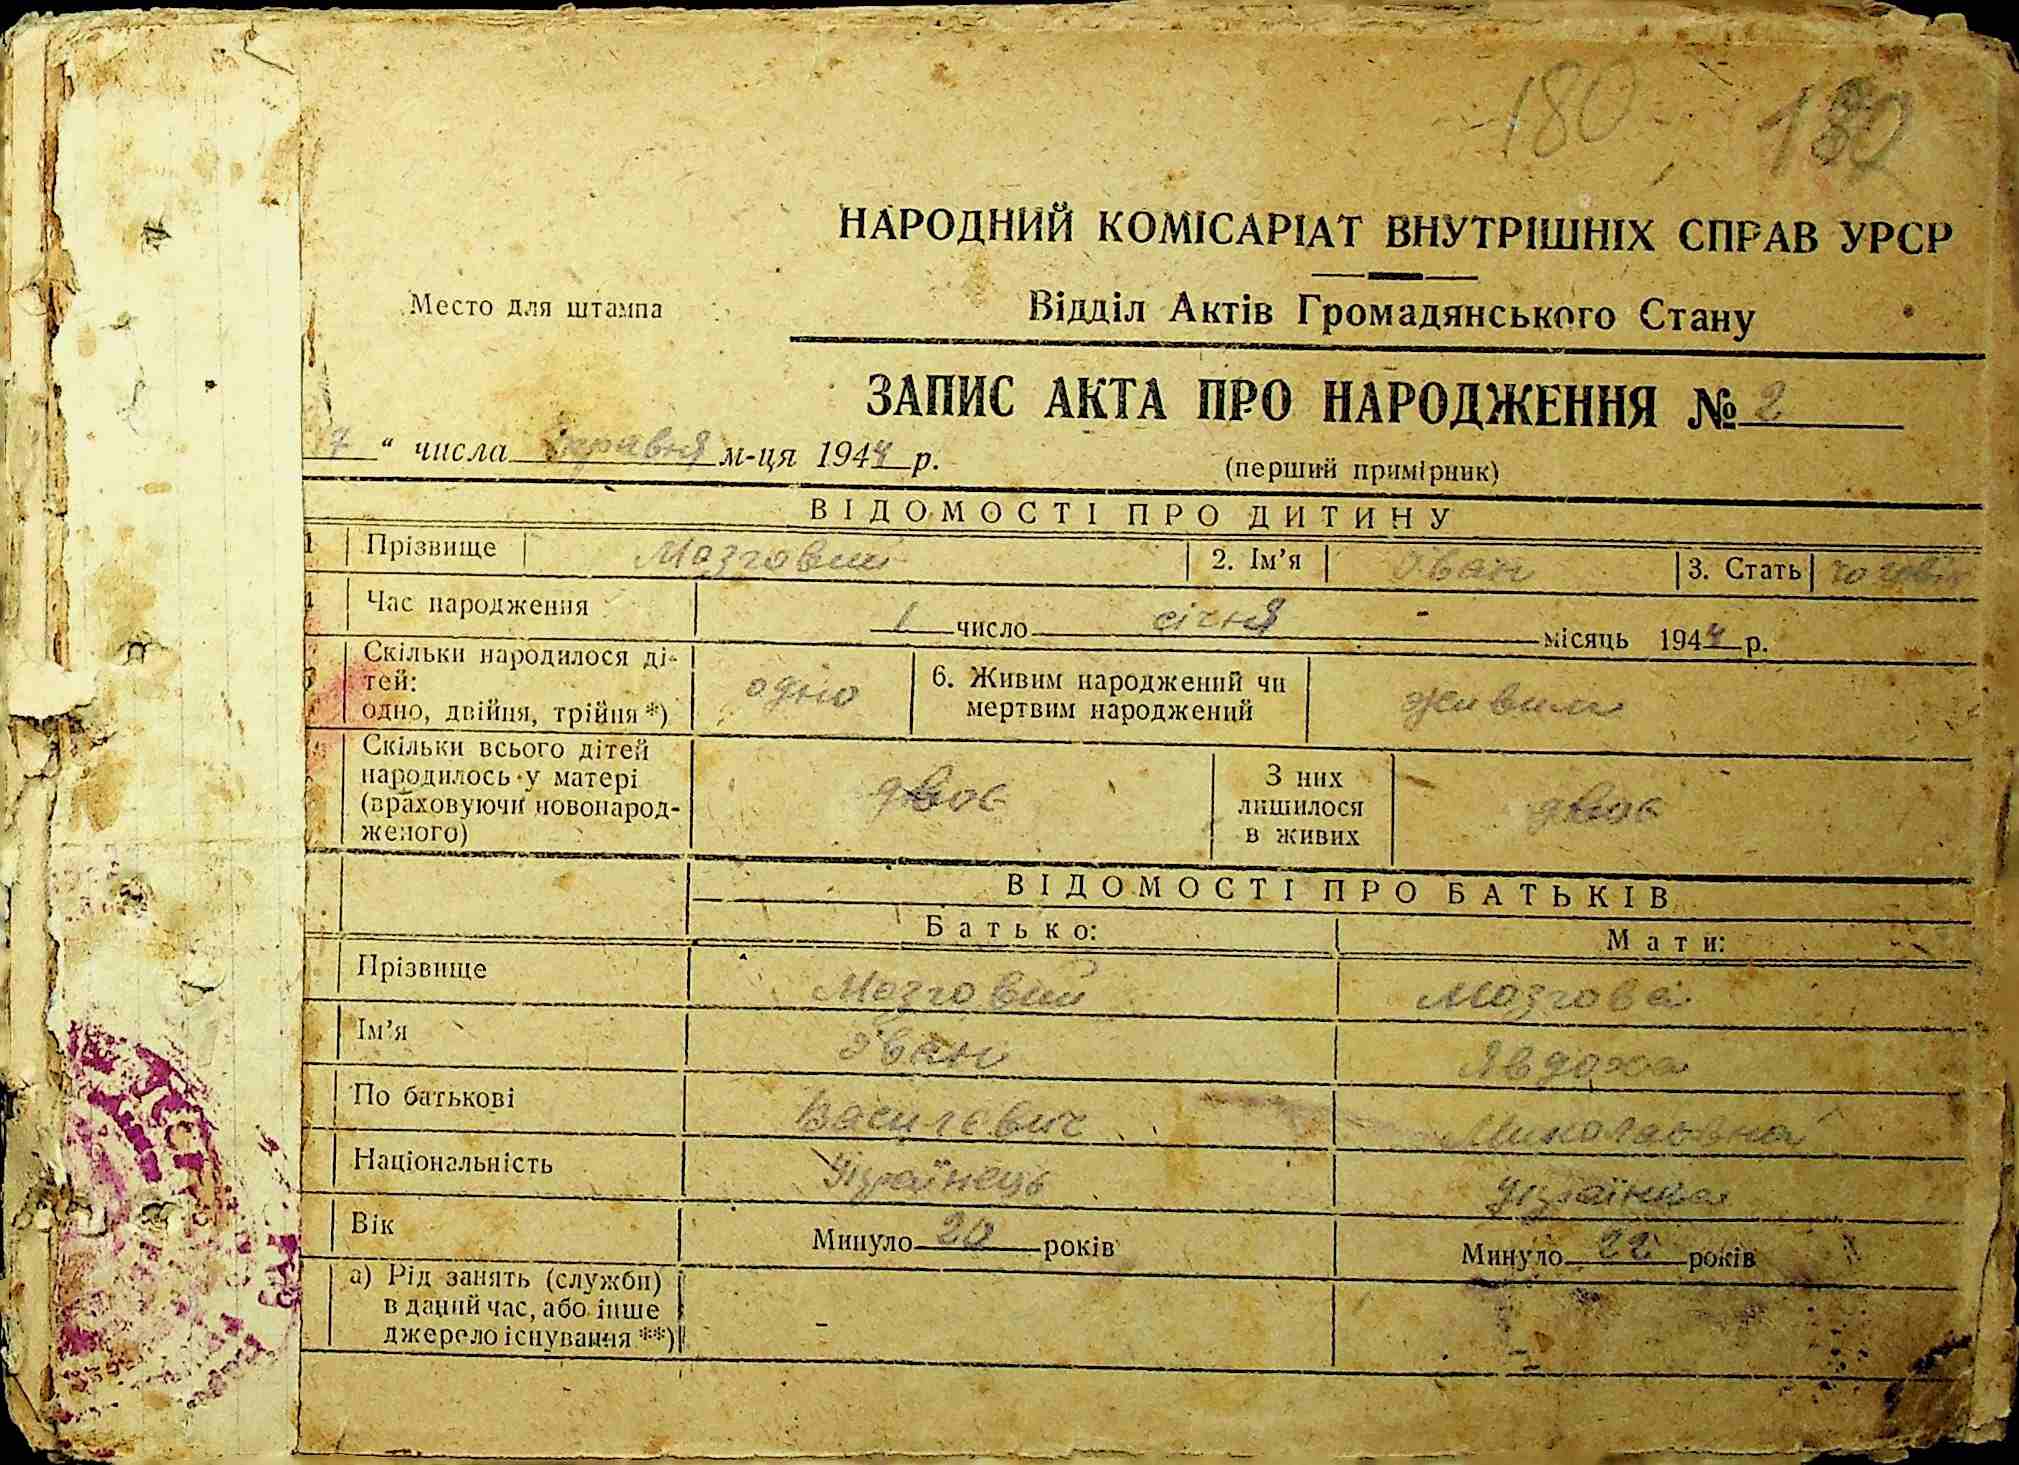 180 180
НАРОДНИЙ КОМІСАРІАТ ВНУТРІШНІХ СПРАВ УРСР
Место для штампа
Відділ Актів Громадянського Стану
ЗАПИС АКТА ПРО НАРОДЖЕННЯ № 2
17 " числа травня м-ця 1944 р.
(перший примірник)
ВІДОМОСТІ ПРО ДИТИНУ
1 Прізвище Мозговий 2. Ім'я Іван 3. Стать чоловік
4 Час народження 1 число січня місяць 1944 р.
Скільки народилося ді-
тей:
одно, двійня, трійня *)
одно
6. Живим народжений чи
мертвим народжений
живим
Скільки всього дітей
народилось у матері
(враховуючи новонарод-
женого)
двоє
З них
лишилося
в живих
двоє
ВІДОМОСТІ ПРО БАТЬКІВ
Батько: Мати:
Прізвище Мозговий Мозгова
Ім'я Іван Явдоха
По батькові Василевич Миколаєвна
Національність Українець Українка
Вік Минуло 20 років Минуло 22 років
а) Рід занять (служби)
в даний час, або інше
джерело існування **)